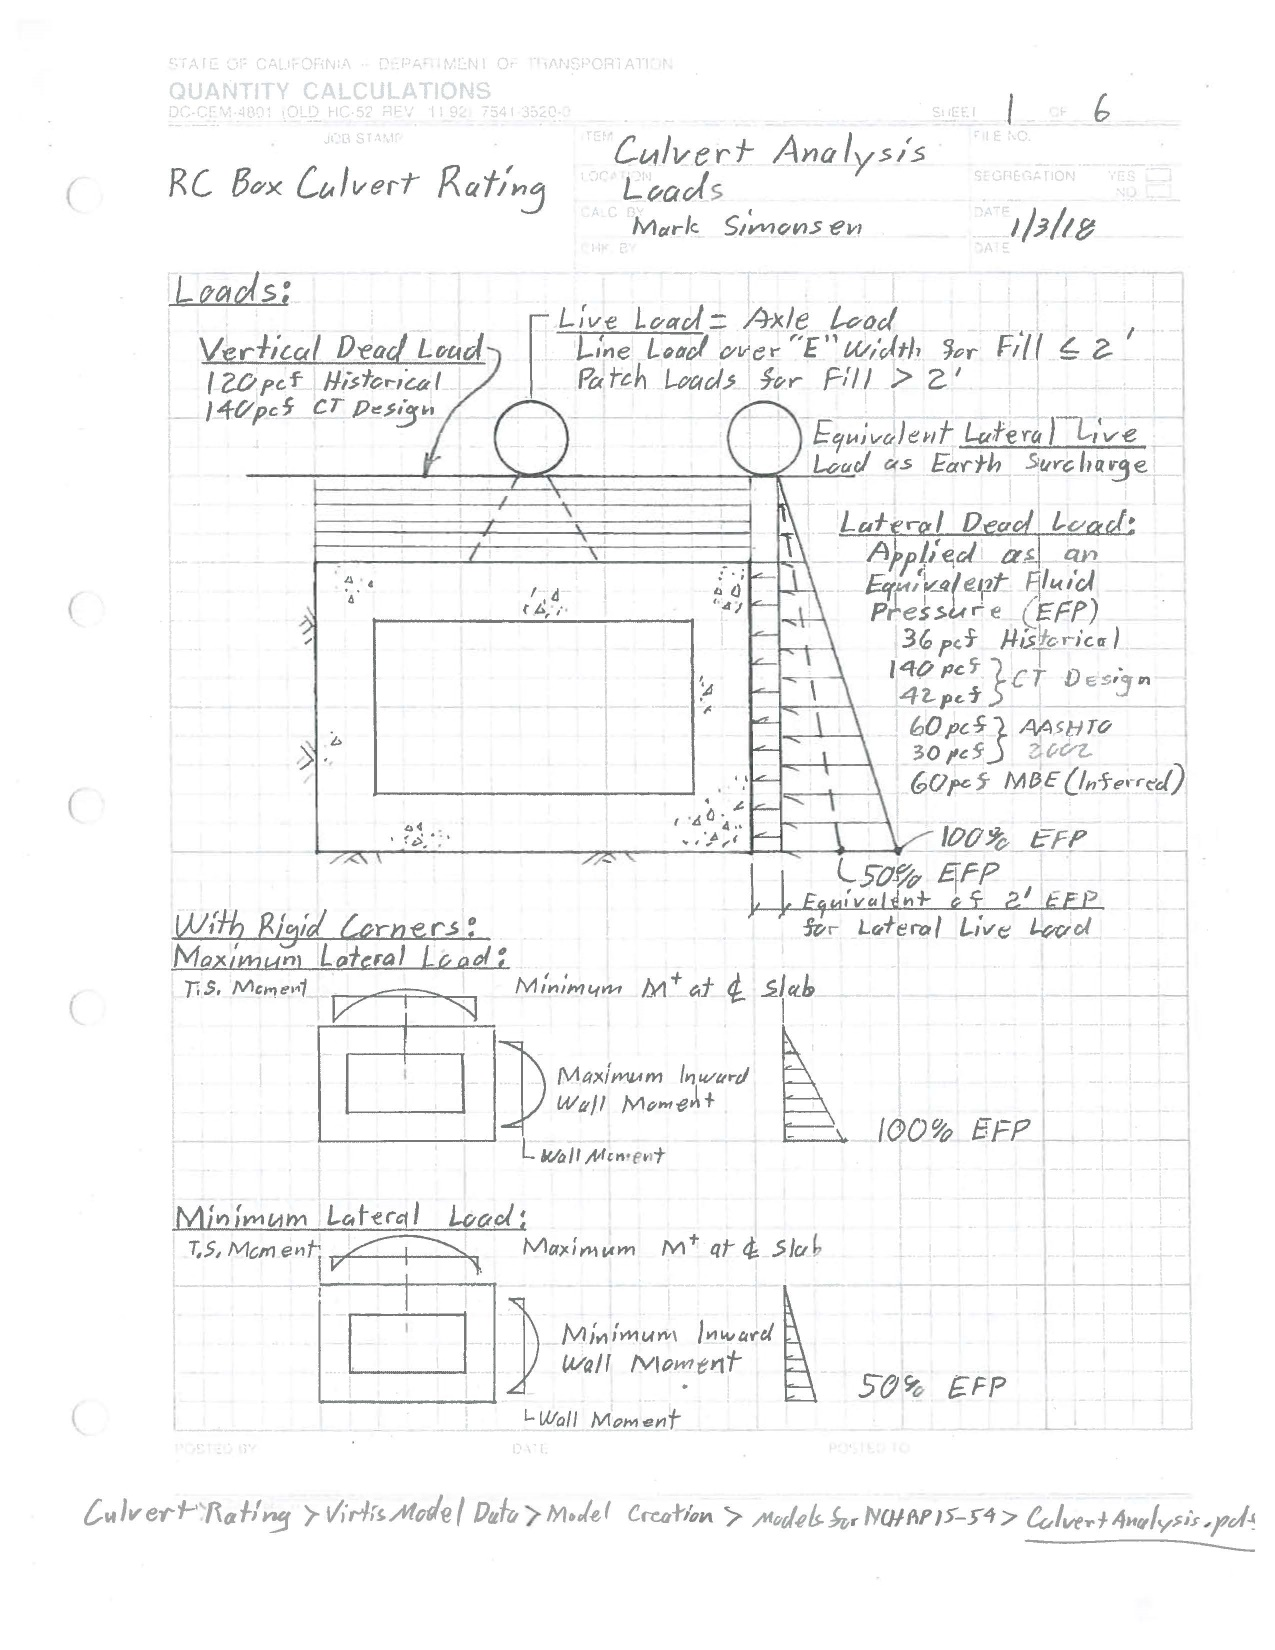 STATE OF CALIFORNIA – DEPARTMENT OF TRANSPORTATION
QUANTITY CALCULATIONS
DC-CEM-4801 (OLD HC-52 REV 11 92) 7541-3520-0
SHEET 1 OF 6
JOB STAMP
RC Box Culvert Rating
ITEM
Culvert Analysis
LOCATION
Loads
CALC BY
Mark Simonsen
CHK. BY
FILE NO.
SEGREGATION YES
NO
DATE
1/3/18
DATE
Loads:
Vertical Dead Load
120 pcf Historical
140 pcf CT Design
Live Load = Axle Load
Line Load over "E" Width for Fill ≤ 2'
Patch Loads for Fill > 2'
Equivalent Lateral Live
Load as Earth Surcharge
Lateral Dead Load:
Applied as an
Equivalent Fluid
Pressure (EFP)
36 pcf Historical
140 pcf } CT Design
42 pcf
60 pcf } AASHTO
30 pcf 2002
60 pcf MBE (Inferred)
100% EFP
50% EFP
Equivalent of 2' EFP
for Lateral Live Load
With Rigid Corners:
Maximum Lateral Load:
T.S. Moment
Minimum M+ at ℄ slab
Maximum Inward
Wall Moment
Wall Moment
100% EFP
Minimum Lateral Load:
T.S. Moment
Maximum M+ at ℄ Slab
Minimum Inward
Wall Moment
Wall Moment
50% EFP
POSTED BY DATE POSTED TO
Culvert Rating > Virtis Model Data > Model Creation > Models for NCHRP15-54 > Culvert Analysis.pdf